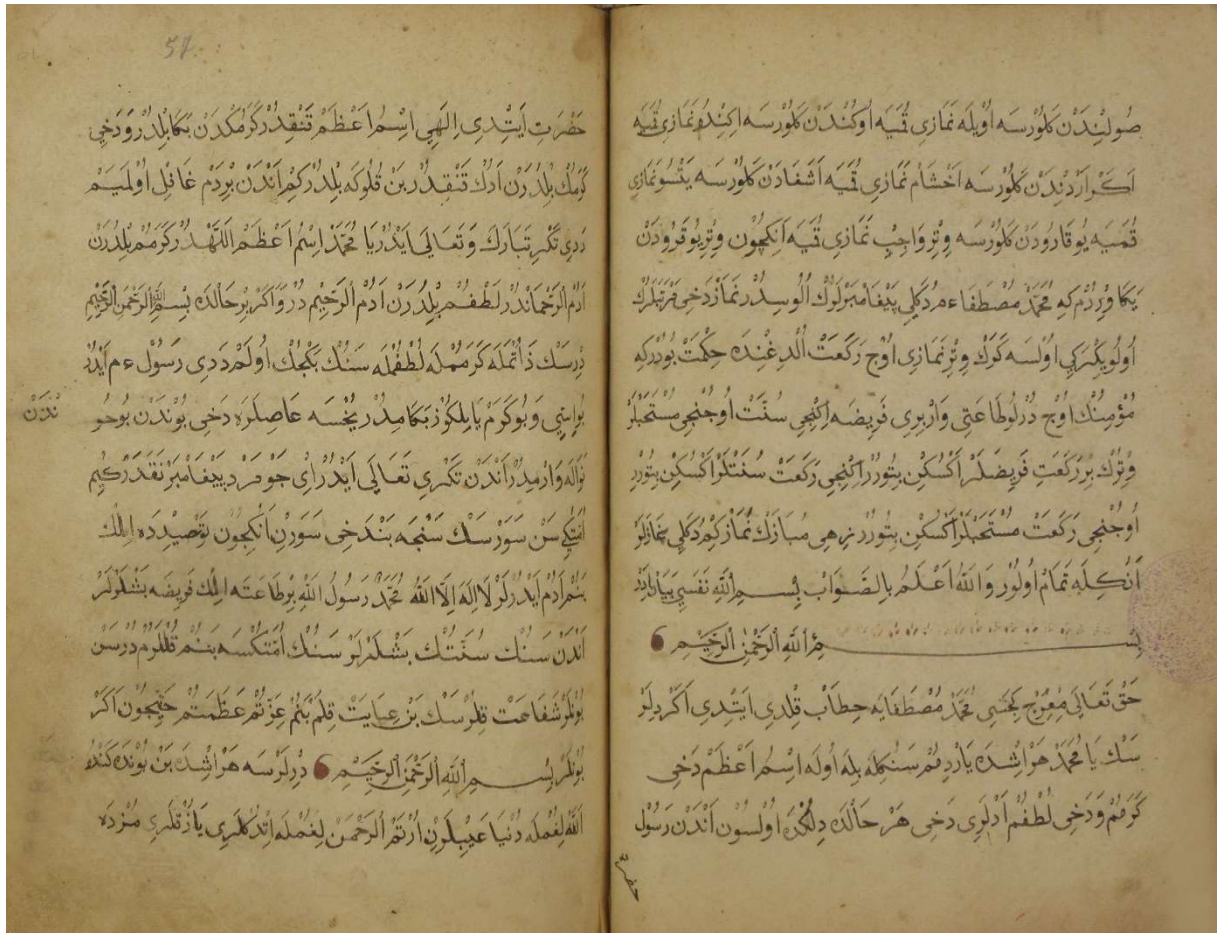 صُولِنْدَنْ كَلُورْسَه اُويْلَه نَمَازِى قُمَيَه اُوكُندَنْ كَلُورْسَه اِكِنْدُو نَمَازِى قُمَيَه
اَكَرْ اَرْدِنْدَنْ كَلُورْسَه اَخْشَامْ نَمَازِى قُمَيَه اَشَغَادَنْ كَلُورْسَه يَتْسُو نَمَازِى
قُمَيَه يُوقَارُودَنْ كَلُورْسَه وِتْرِ وَاجِبْ نَمَازِى قُمَيَه اَنِكچُونْ وِتْرِ يُوقَرُودَنْ
بَكَا وِرْدُمْ كِه مُحَمَّدْ مُصْطَفَا ءم دُكَلِى پَيْغَامْبَرْلَرُكْ اُلُوسِدُرْ نَمَازْ دَخِى
اُولُويِكْرَكِى اُولْسَه كَرَكْ وِتْرِ نَمَازِى اُوچْ رَكَعَتْ اُلْدِغِنْدَه حِكْمَتْ بُودُرْكِه
مُؤْمِنُكْ اُوچْ دُرْلُو طَاعَتِى وَارْ بِرِى فَرِيضَه اِكِنْجِى سُنَّتْ اُوجُنْجِى مُسْتَحَبْلَرْ
وِتْرُكْ بِرْ رَكَعَتِ فَرِيضَلَرْ اَكْسُكِنْ بِتُورُرْ اِكِنْجِى رَكَعَتْ سُنَّتْلَرْ اَكْسُكِنْ بِتُورُرْ
اُوجُنْجِى رَكَعَتْ مُسْتَحَبْلَرْ اَكْسُكِنْ بِتُورُرْ زِهِى مُبَارَكْ نَمَازْ كِمْ دُكَلِى نَمَازْلَرْ
اَنُكِلَه تَمَامْ اُولُورْ وَاللّٰهُ اَعْلَمُ بِالصَّوَابْ بِسْمِ اللّٰهِ تَفْسِيرِ بَيَانْ
بِسْمِ اللّٰهِ الرَّحْمٰنِ الرَّحِيمِ
حَقْ تَعَالَى مِعْرَجْ كِجَسِى مُحَمَّدْ مُصْطَفَايَه خِطَابْ قِلْدِى اَيِتْدِى اَكَرْ دِلَرْ
سَكْ يَا مُحَمَّدْ هَرْ اِشْدَه يَارْدِمُمْ سَنُكِلَه بِلَه اُولَه اِسْمُ اَعْظَمْ دَخِى
كَرَمُمْ وَدَخِى لُطْفُمْ اَدْلَرِى دَخِى هَرْ حَالْدَه دِلُكْدَه اُولْسُونْ اَنْدَنْ رَسُولْ
حضرت
57
حَضْرَتِ اَيِتْدِى اِلٰهِى اِسْمُ اَعْظَمْ قَنْقِدُرْ كَرَمُكْدَنْ بَكَا بِلْدُرْ وَدَخِى
كَرَمُكْ بِلْدُرَنْ اَدُكْ قَنْقِدُرْ بَنْ قُلُوكَه بِلْدُرْ كِمْ اَنْدَنْ بِرْدَمْ غَافِلْ اُولْمَيَمْ
دَدِى تَكْرِى تَبَارَكَ وَتَعَالَى اَيْدُرْ يَا مُحَمَّدْ اِسْمُ اَعْظَمْ اَللّٰهْدُرْ كَرَمُمْ بِلْدُرَنْ
اَدُمْ اَلرَّحْمَانْدُرْ لُطْفُمْ بِلْدُرَنْ اَدُمْ اَلرَّحِيمْدُرْ وَاكَرْ بِرْ حَالْدَه بِسْمِ اللّٰهِ الرَّحْمٰنِ الرَّحِيمِ
دِرْسَكْ ذَاتُمْلَه كَرَمُمْلَه لُطْفُمْلَه سَنُكْ بَكْجُكْ اُولَمْ دَدِى رَسُولْ ءم اَيْدُرْ
بُو اِسِّى وَبُو كَرَمْ بَايِلِكُوزْ بَكَامِدُرْ يُخْسَه عَاصِلَرَه دَخِى بُونْدَنْ بُوحُو
نْدَنْ
نَوَالَه وَارْمِدُرْ اَنْدَنْ تَكْرِى تَعَالَى اَيْدُرْ اَىْ جَوْمَرْد پَيْغَامْبَرْ نَقَدَرْكِيمْ
اُمَّتُكِى سَنْ سَوَرْسَكْ سَنْجَه بَنْدَخِى سَوَرَنْ اَنِكچُونْ تَوْحِيدْدَه اِلْكْ
بَنُمْ اَدُمْ اَيْدُرْلَرْ لَا اِلٰهَ اِلَّا اللّٰهُ مُحَمَّدٌ رَسُولُ اللّٰهِ بِرْ طَاعَتَه اِلْكْ فَرِيضَه بَشْلَرْلَرْ
اَنْدَنْ سَنُكْ سُنَّتُكْ بَشْلَرْلَرْ سَنُكْ اُمَّتُكْسَه بَنُمْ قُلْلَرُمْدُرْ سَنْ
بُونْلَرْ شَفَاعَتْ قِلُرْسَكْ بَنْ عِنَايَتْ قِلَمْ بَنُمْ عِزَّتُمْ عَظَمَتُمْ حَقِّيچُونْ اَكَرْ
بُونْلَرْ بِسْمِ اللّٰهِ الرَّحْمٰنِ الرَّحِيمِ دِرْلَرْسَه هَرْ اِشْدَه بَنْ بُونْدَه كَنْدُو
اَللّٰهْلِغُمْلَه دُنْيَا عَيِبْلَرِنْ اُرْتَمْ اَلرَّحْمٰنْ لِغُمْلَه اِتْدُكْلَرِى يَازُقْلَرِى مُزْدَه